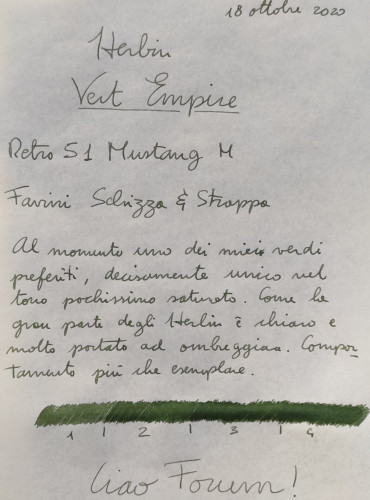 18 ottobre 2020
Herbin
Vert Empire
Retro 51 Mustang M
Favini Schizza & Strappa
Al momento uno dei miei verdi
preferiti, decisamente unico nel
tono pochissimo saturato. Come la
gran parte degli Herbin è chiaro e
molto portato ad ombreggiare. Compor_
tamento più che esemplare.
1 | 2 | 3 | 4
Ciao Forum!